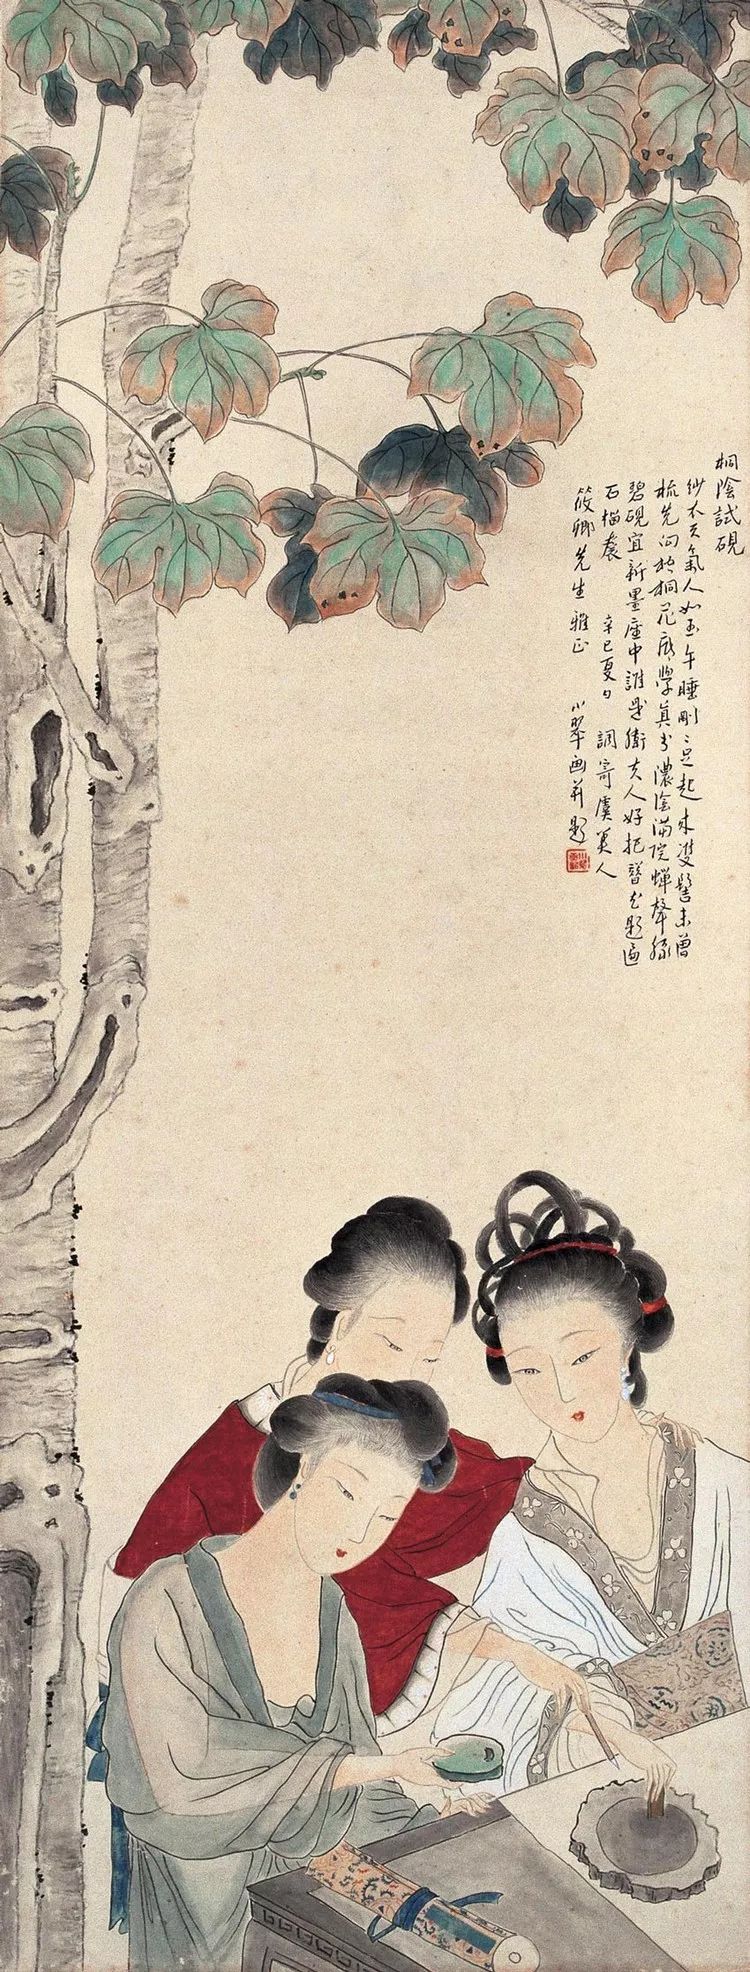 桐陰試硯
紗衣天氣人如玉午睡剛〻足起來雙髻未曾
梳先向桐花底學真書濃陰滿院蟬聲綠
碧硯宜新墨座中誰是衛夫人好把簪花題遍
石榴裠 辛巳夏日 調寄虞美人
筱卿先生雅正 小翠画并題